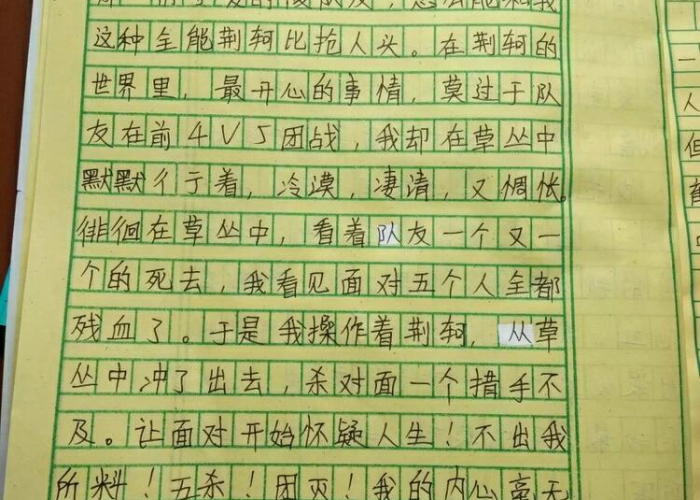 这种全能荆轲比抢人头。在荆轲的
世界里，最开心的事情，莫过于队
友在前4V5团战，我却在草丛中
默默彳亍着，冷漠，凄清，又惆怅。
徘徊在草丛中，看着队友一个又一
个的死去，我看见面对五个人全都
残血了。于是我操作着荆轲，从草
丛中冲了出去，杀对面一个措手不
及。让面对开始怀疑人生！不出我
所料！五杀！团灭！我的内心毫无